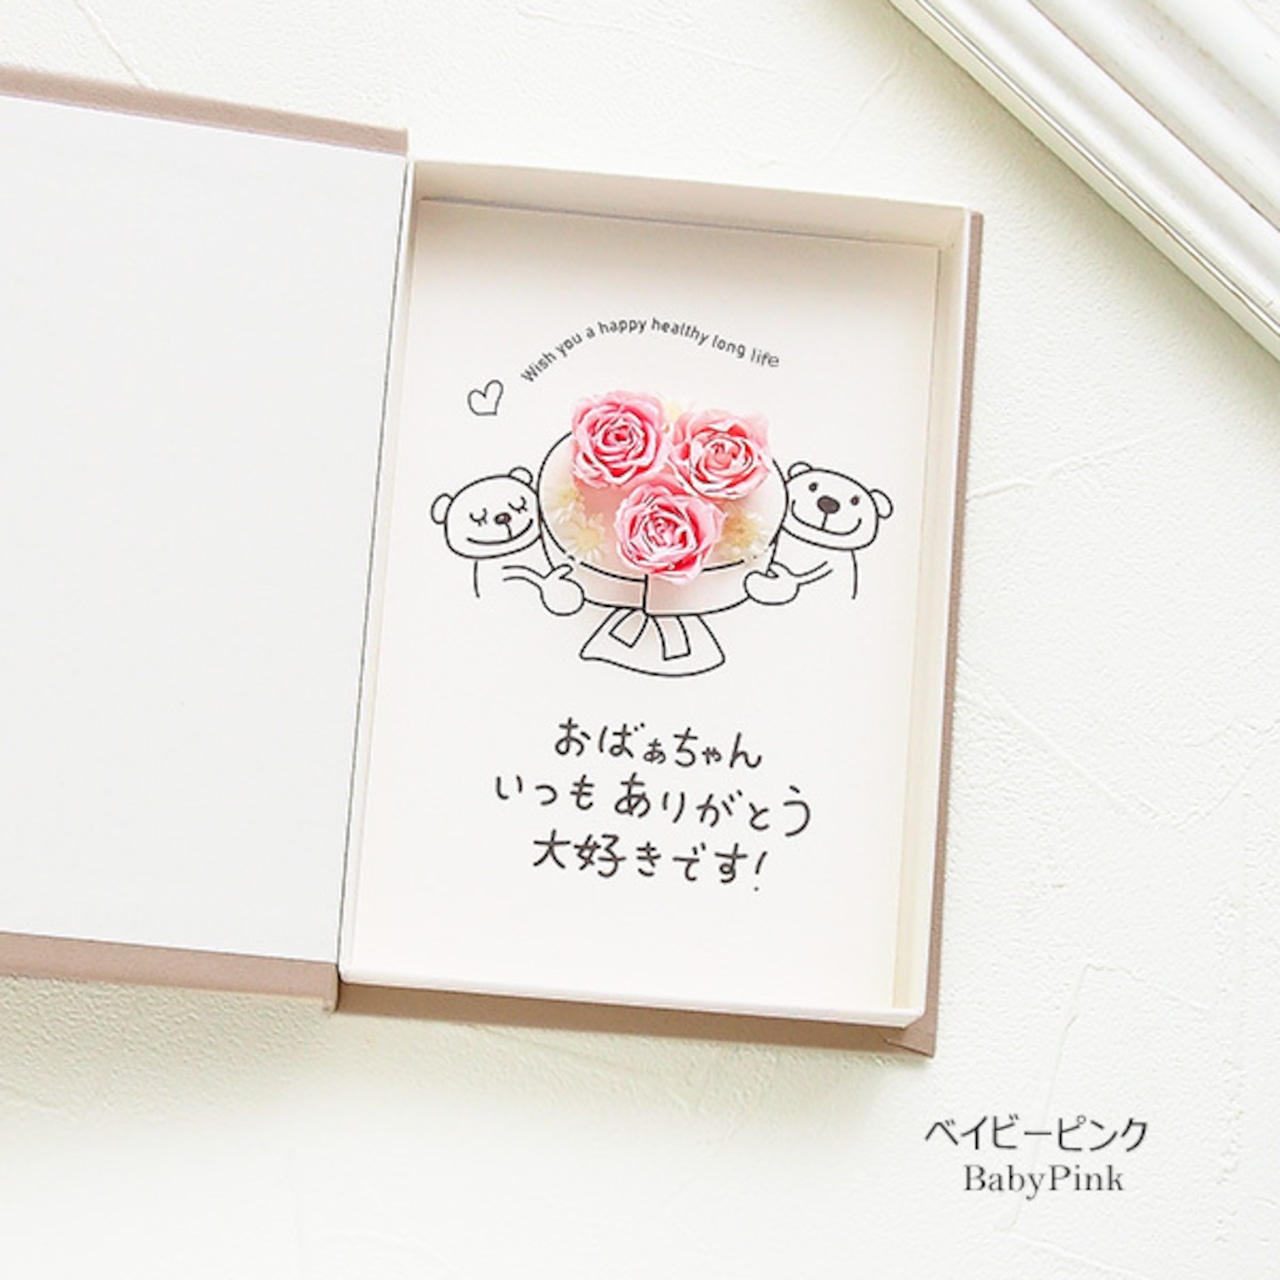 Wish you a happy healthy long life
おばぁちゃん
いつもありがとう
大好きです!
ベイビーピンク
BabyPink